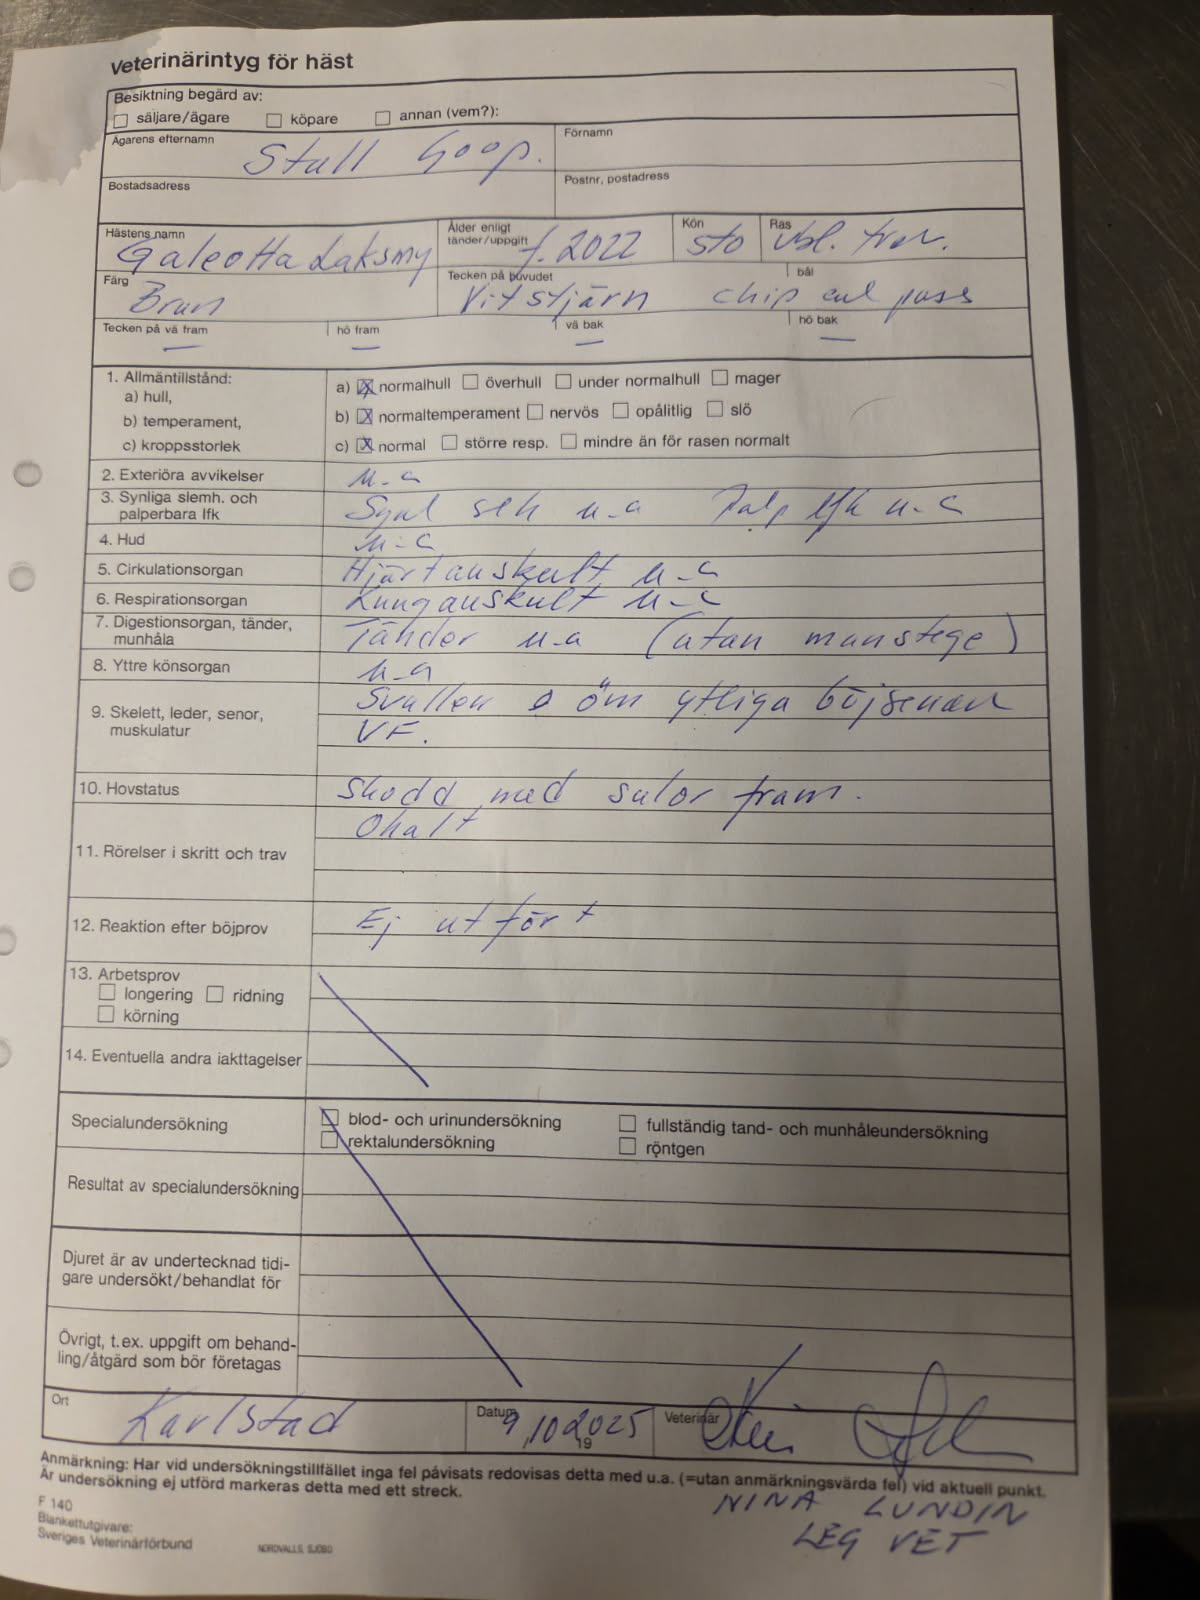 Veterinärintyg för häst
Besiktning begärd av:
☐ säljare/ägare ☐ köpare ☐ annan (vem?):
Ägarens efternamn Stall Goop. Förnamn
Bostadsadress Postnr, postadress
Hästens namn Galeotta Laksmy Ålder enligt tänder/uppgift f. 2022 Kön sto Ras vbl. trav.
Färg Brun Tecken på huvudet Vit stjärn bål chip enl pass
Tecken på vä fram — hö fram — vä bak — hö bak —
1. Allmäntillstånd:
a) hull, a) ☒ normalhull ☐ överhull ☐ under normalhull ☐ mager
b) temperament, b) ☒ normaltemperament ☐ nervös ☐ opålitlig ☐ slö
c) kroppsstorlek c) ☒ normal ☐ större resp. ☐ mindre än för rasen normalt
2. Exteriöra avvikelser u-a
3. Synliga slemh. och palperbara lfk Synl slh u-a Palp lfk u-a
4. Hud u-a
5. Cirkulationsorgan Hjärtauskult u-a
6. Respirationsorgan Lungauskult u-a
7. Digestionsorgan, tänder, munhåla Tänder u-a (utan munstege)
8. Yttre könsorgan u-a
9. Skelett, leder, senor, muskulatur Svullen o öm ytliga böjsenan
VF.
10. Hovstatus Skodd med sulor fram.
11. Rörelser i skritt och trav Ohalt
12. Reaktion efter böjprov Ej utfört
13. Arbetsprov
☐ longering ☐ ridning
☐ körning
14. Eventuella andra iakttagelser
Specialundersökning ☐ blod- och urinundersökning ☐ fullständig tand- och munhåleundersökning
☐ rektalundersökning ☐ röntgen
Resultat av specialundersökning
Djuret är av undertecknad tidi-
gare undersökt/behandlat för
Övrigt, t.ex. uppgift om behand-
ling/åtgärd som bör företagas
Ort Karlstad Datum 9/10 2025 19 Veterinär
Anmärkning: Har vid undersökningstillfället inga fel påvisats redovisas detta med u.a. (=utan anmärkningsvärda fel) vid aktuell punkt.
Är undersökning ej utförd markeras detta med ett streck.
NINA LUNDIN
LEG VET
F 140
Blankettutgivare:
Sveriges Veterinärförbund
NORDVALLS, SJÖBO